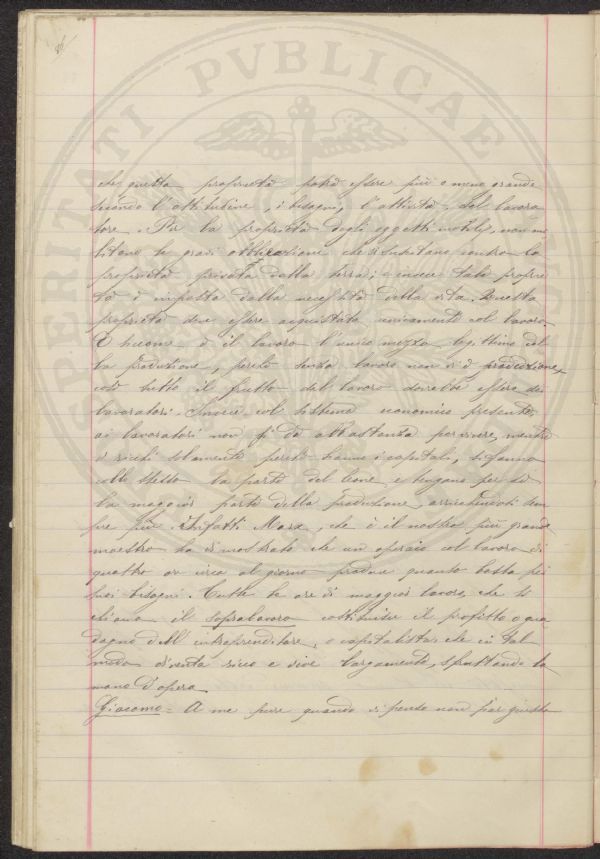 PERITATI PVBLICAE
che questa proprietà potrà essere più o meno grande
secondo l'attitudine, i bisogni, l'attività del lavora
tore. Per la proprietà degli oggetti mobili, non mi
litano le gravi obbiezioni che si suscitano contro la
proprietà privata della terra; e invece tale proprie
tà è imposta dalla necessità della vita. Questa
proprietà deve essere acquistata unicamente col lavoro.
E siccome è il lavoro l'unico mezzo legittimo del
la produzione, perchè senza lavoro non vi è produzione,
così tutto il frutto del lavoro dovrebbe essere dei
lavoratori. Invece col sistema economico presente,
ai lavoratori non si dà abbastanza per vivere, mentre
i ricchi solamente perchè hanno i capitali, si fanno
molto spesso la parte del leone, e tengono per sè
la maggior parte della produzione, arricchendosi sem
pre più. Difatti Marx, che è il nostro più grande
maestro ha dimostrato che un operaio col lavoro di
quattro ore circa al giorno produce quanto basta pei
suoi bisogni. Tutte le ore di maggior lavoro, che si
chiama il sopralavoro costituisce il profitto o gua
dagno dell'intraprenditore, o capitalista che in tal
modo diventa ricco e vive largamente, sfruttando la
mano d'opera.
Giacomo = A me pure quando ci penso non par giusto